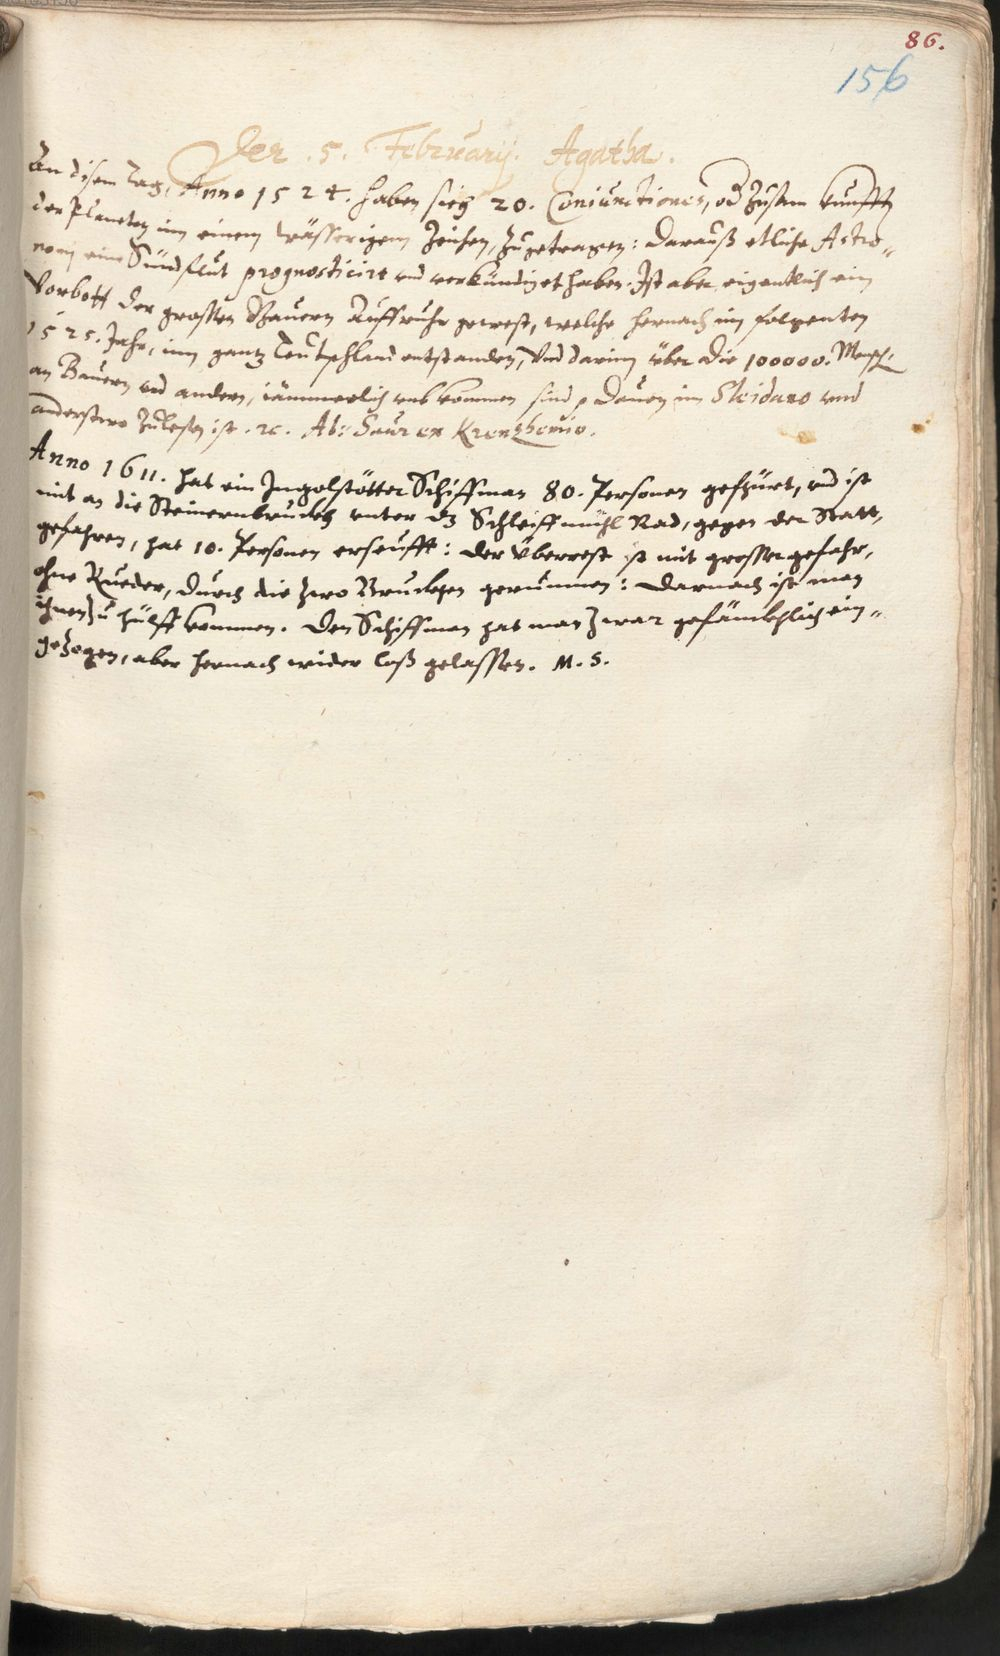 86.
156
Der .5. February. Agatha.
An disem Tag, Anno 1524. haben sich 20. Coniunctiones, od Zusam kunfft
der Planeten im einem wässerigem Zeichen, Zugetragen: darauß etliche Astro-
nomj eine Sündflut prognosticirt vnd verkündiget haben. Ist aber eigentlich ein
Vorbott der grossen Bauern Auffruhr gewest, welche hernach im folgenten
1525. Jahr, im gantz Teutschland entstanden, Vnd darinn über die 100000. Mensch:
an Bauern vnd andern, jämmerlich vmbkommen sind, dauon im Sleidano vnd
anderstwo Zulesen ist .ꝛc. Ab: Saur ex Krentzhemio.
Anno 1611. hat ein Ingolstötter Schiffman 80. Personen gefhürt, vnd ist
mit an die Steinernbruckh vnter dz Schleiffmühl Rad, gegen der Statt,
gefahren, hat 10. Personen erseufft: der Überrest ist mit grosser gefahr,
ohne Rueder, durch die zwo Bruckhen gerunnen: darnach ist man
ihnen Zu hülff kommen. Den Schiffman hat man zwar gefämkhlich ein-
gezogen, aber hernach wider loß gelassen. M. S.